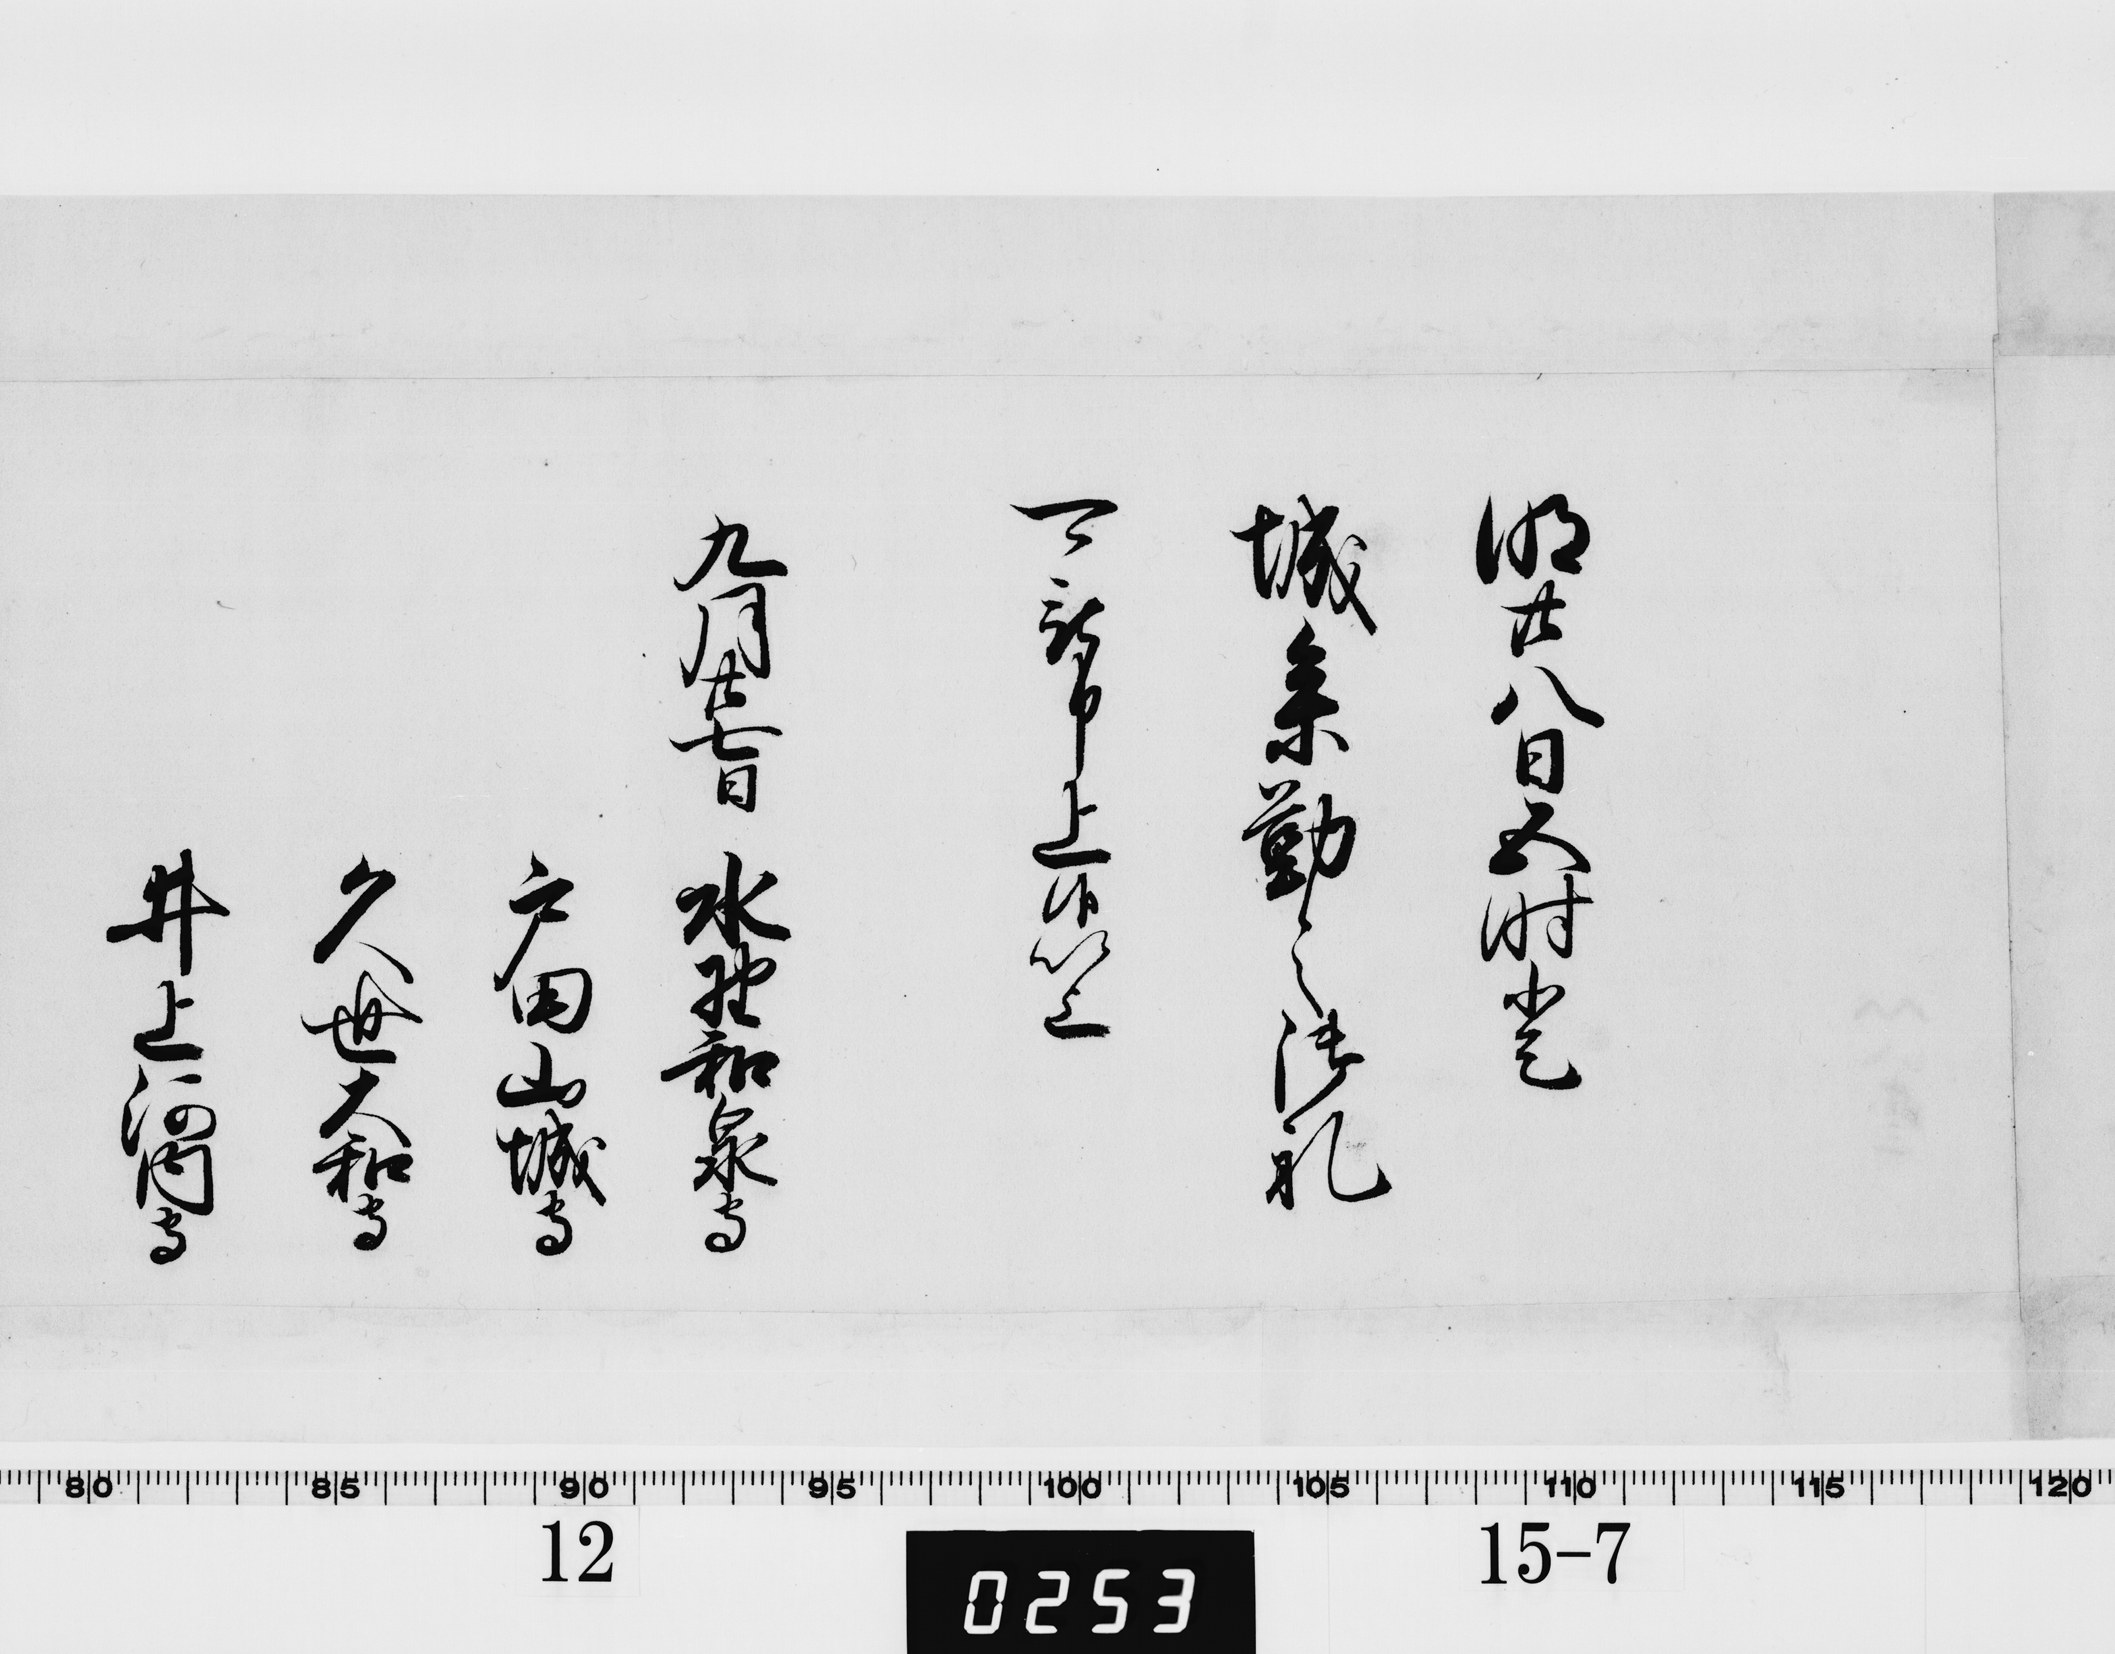 明廿八日五時登
城参勤之御礼
可被申上候以上
九月廿七日
水野和泉守
戸田山城守
久世大和守
井上河内守
80 85 90 95 100 105 110 115 120
12
15-7
0253